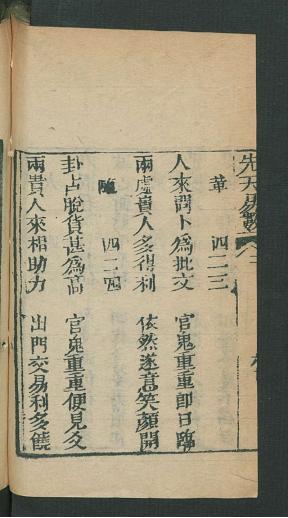 先天易數
華 四二三
人來問卜為批交 官鬼重重即日臨
兩處貴人多得利 依然遂意笑顏開
隨 四二四
卦占脫貨甚為高 官鬼重重便見爻
兩貴人來相助力 出門交易利多饒